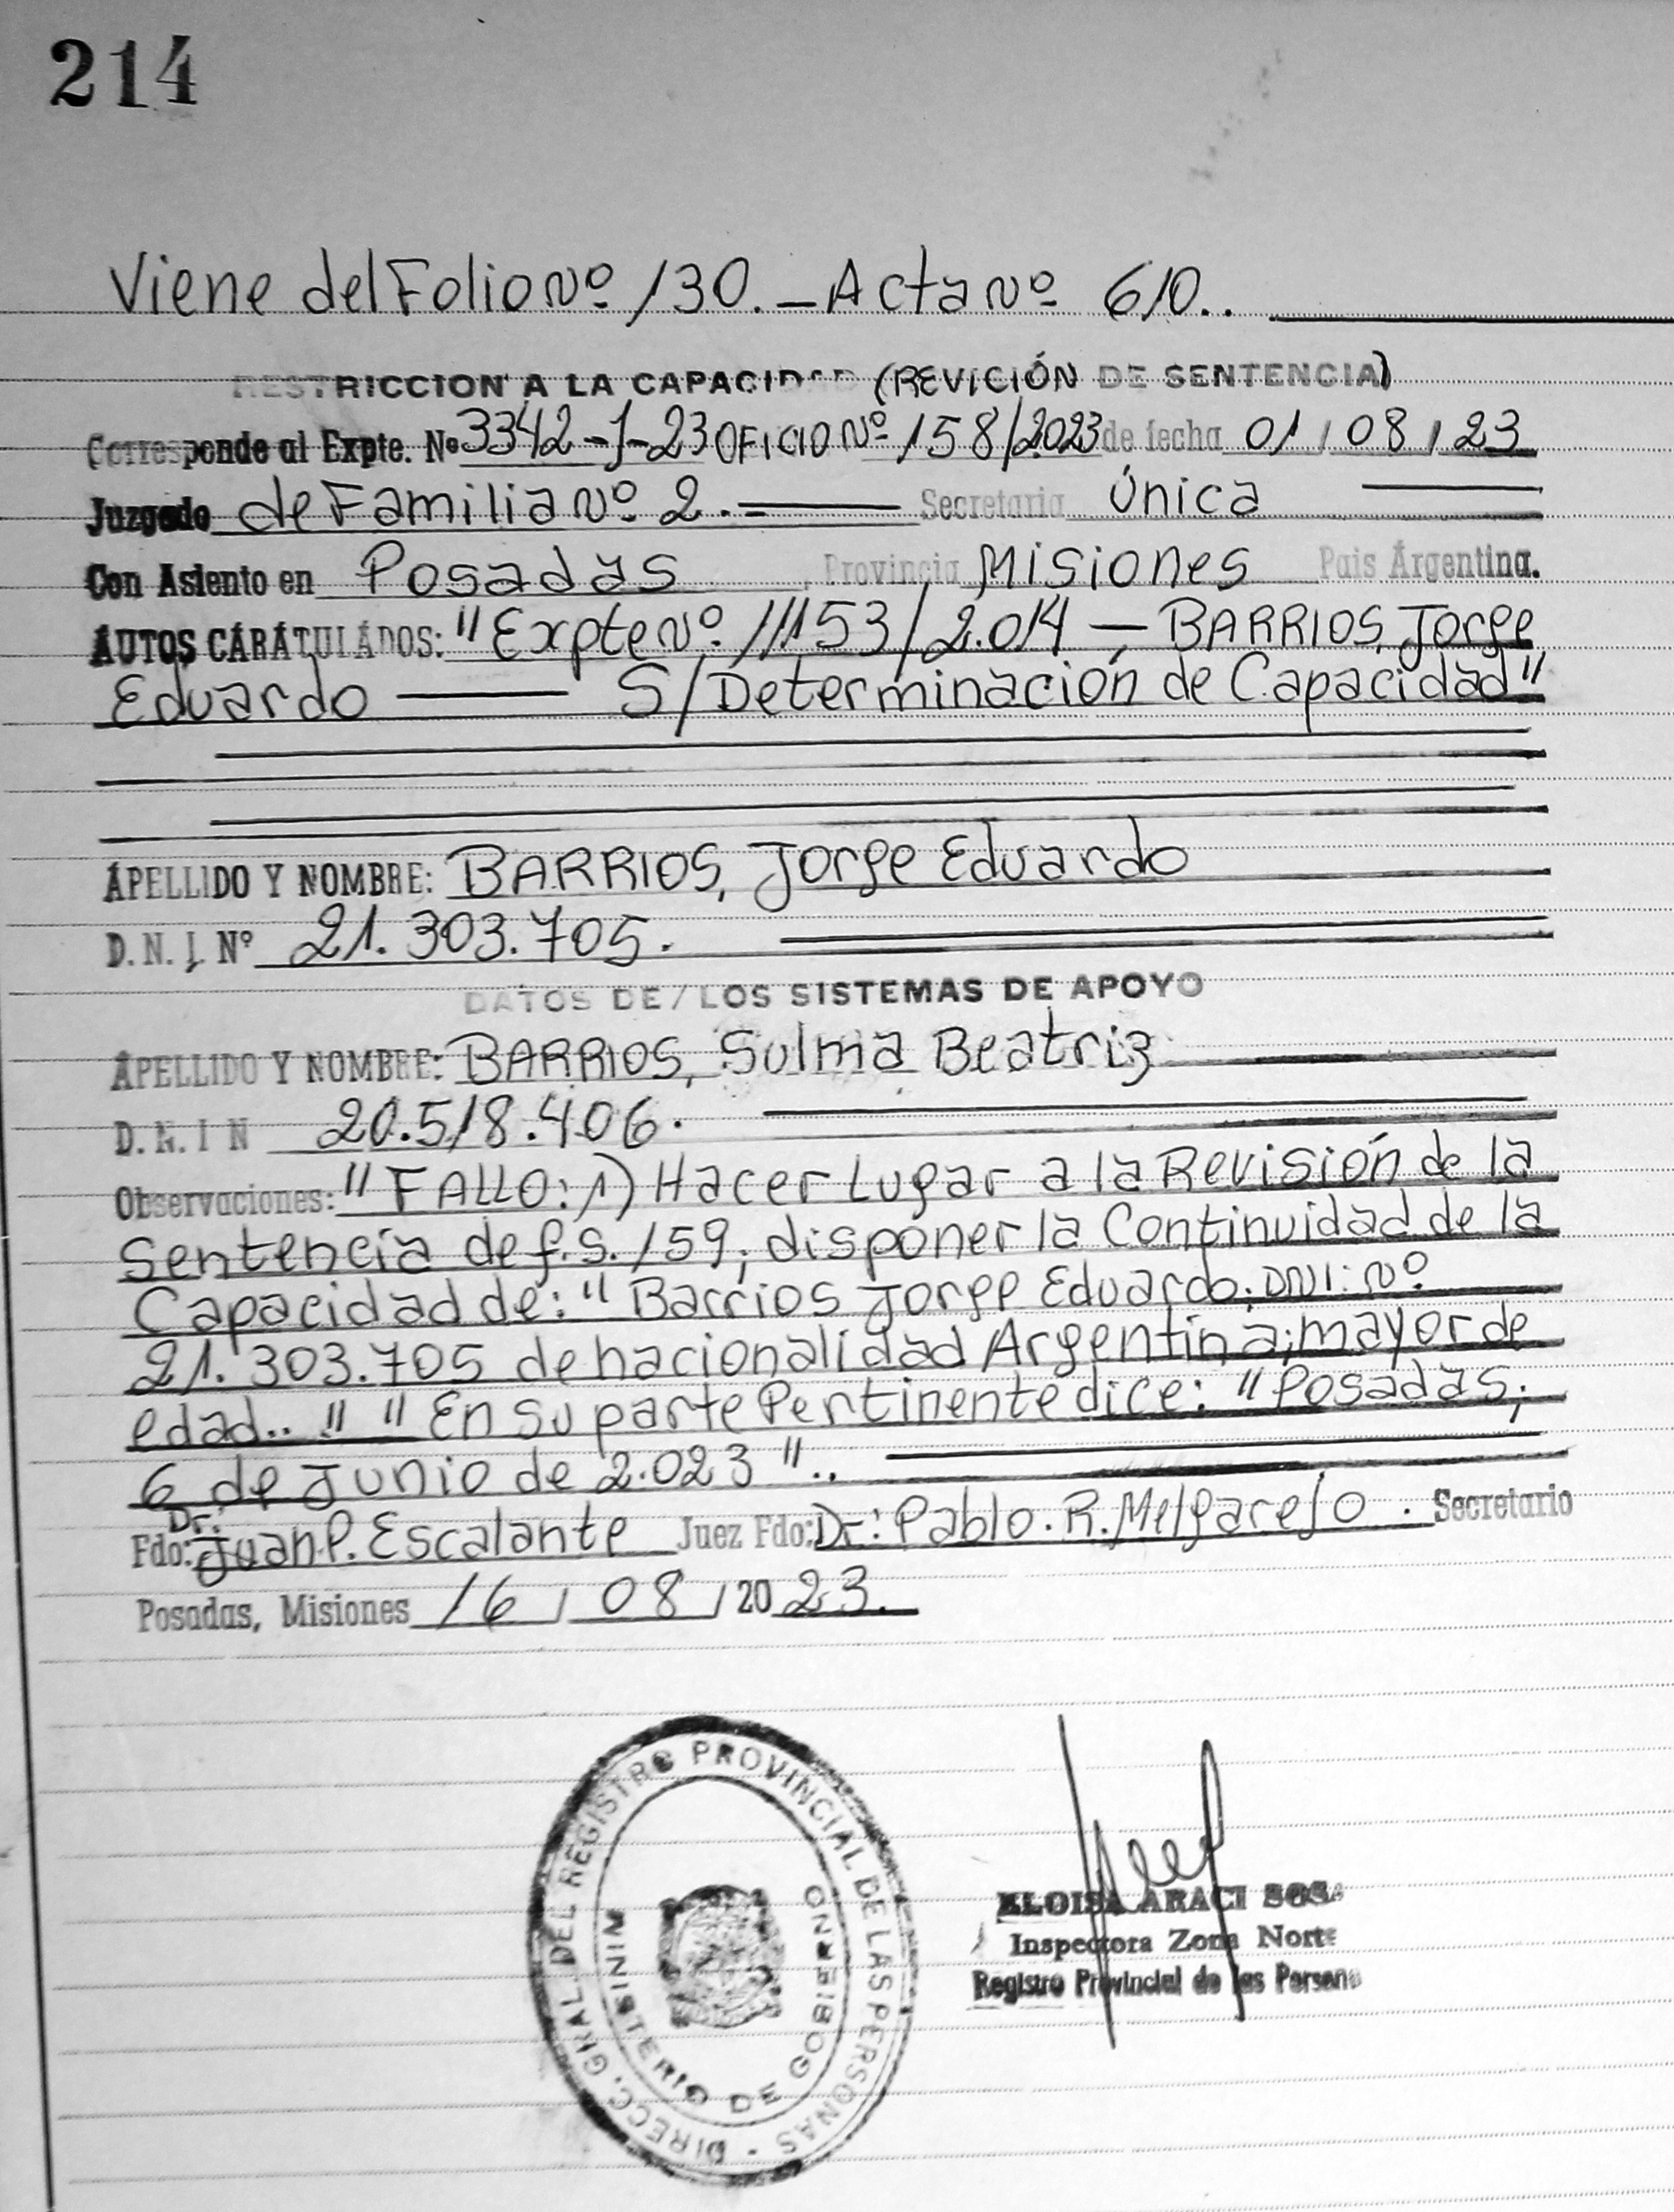 214
Viene del Folio Nº 130. - Acta Nº 610..
RESTRICCION A LA CAPACIDAD (REVICIÓN DE SENTENCIA)
Corresponde al Expte. Nº 3342-J-23 OFICIO Nº 158/2023 de fecha 01/08/23
Juzgado de Familia Nº 2.- Secretaria Única
Con Asiento en Posadas, Provincia Misiones Pais Argentina.
AUTOS CARATULADOS: "Expte Nº. 111153/2.014 - BARRIOS, Jorge
Eduardo S/Determinación de Capacidad"
APELLIDO Y NOMBRE: BARRIOS, Jorge Eduardo
D. N. I. Nº 21.303.705.
DATOS DE/LOS SISTEMAS DE APOYO
APELLIDO Y NOMBRE: BARRIOS, Sulma Beatriz
D. N. I N 20.518.406.
Observaciones: "FALLO: 1) Hacer Lugar a la Revisión de la
Sentencia de f.s. 159; disponer la Continuidad de la
Capacidad de: "Barrios Jorge Eduardo; DNI: Nº
21.303.705 de nacionalidad Argentina; mayor de
edad.." "En su parte Pertinente dice: "Posadas;
6 de Junio de 2.023"..
Fdo: Dr. Juan P. Escalante Juez Fdo: Dr: Pablo. R. Melgarejo. Secretario
Posadas, Misiones 16/08/2023.
DIRECC. GRAL. DEL REGISTRO PROVINCIAL DE LAS PERSONAS
MINISTERIO DE GOBIERNO
ELOISA ARACI SOSA
Inspectora Zona Norte
Registro Provincial de las Persona